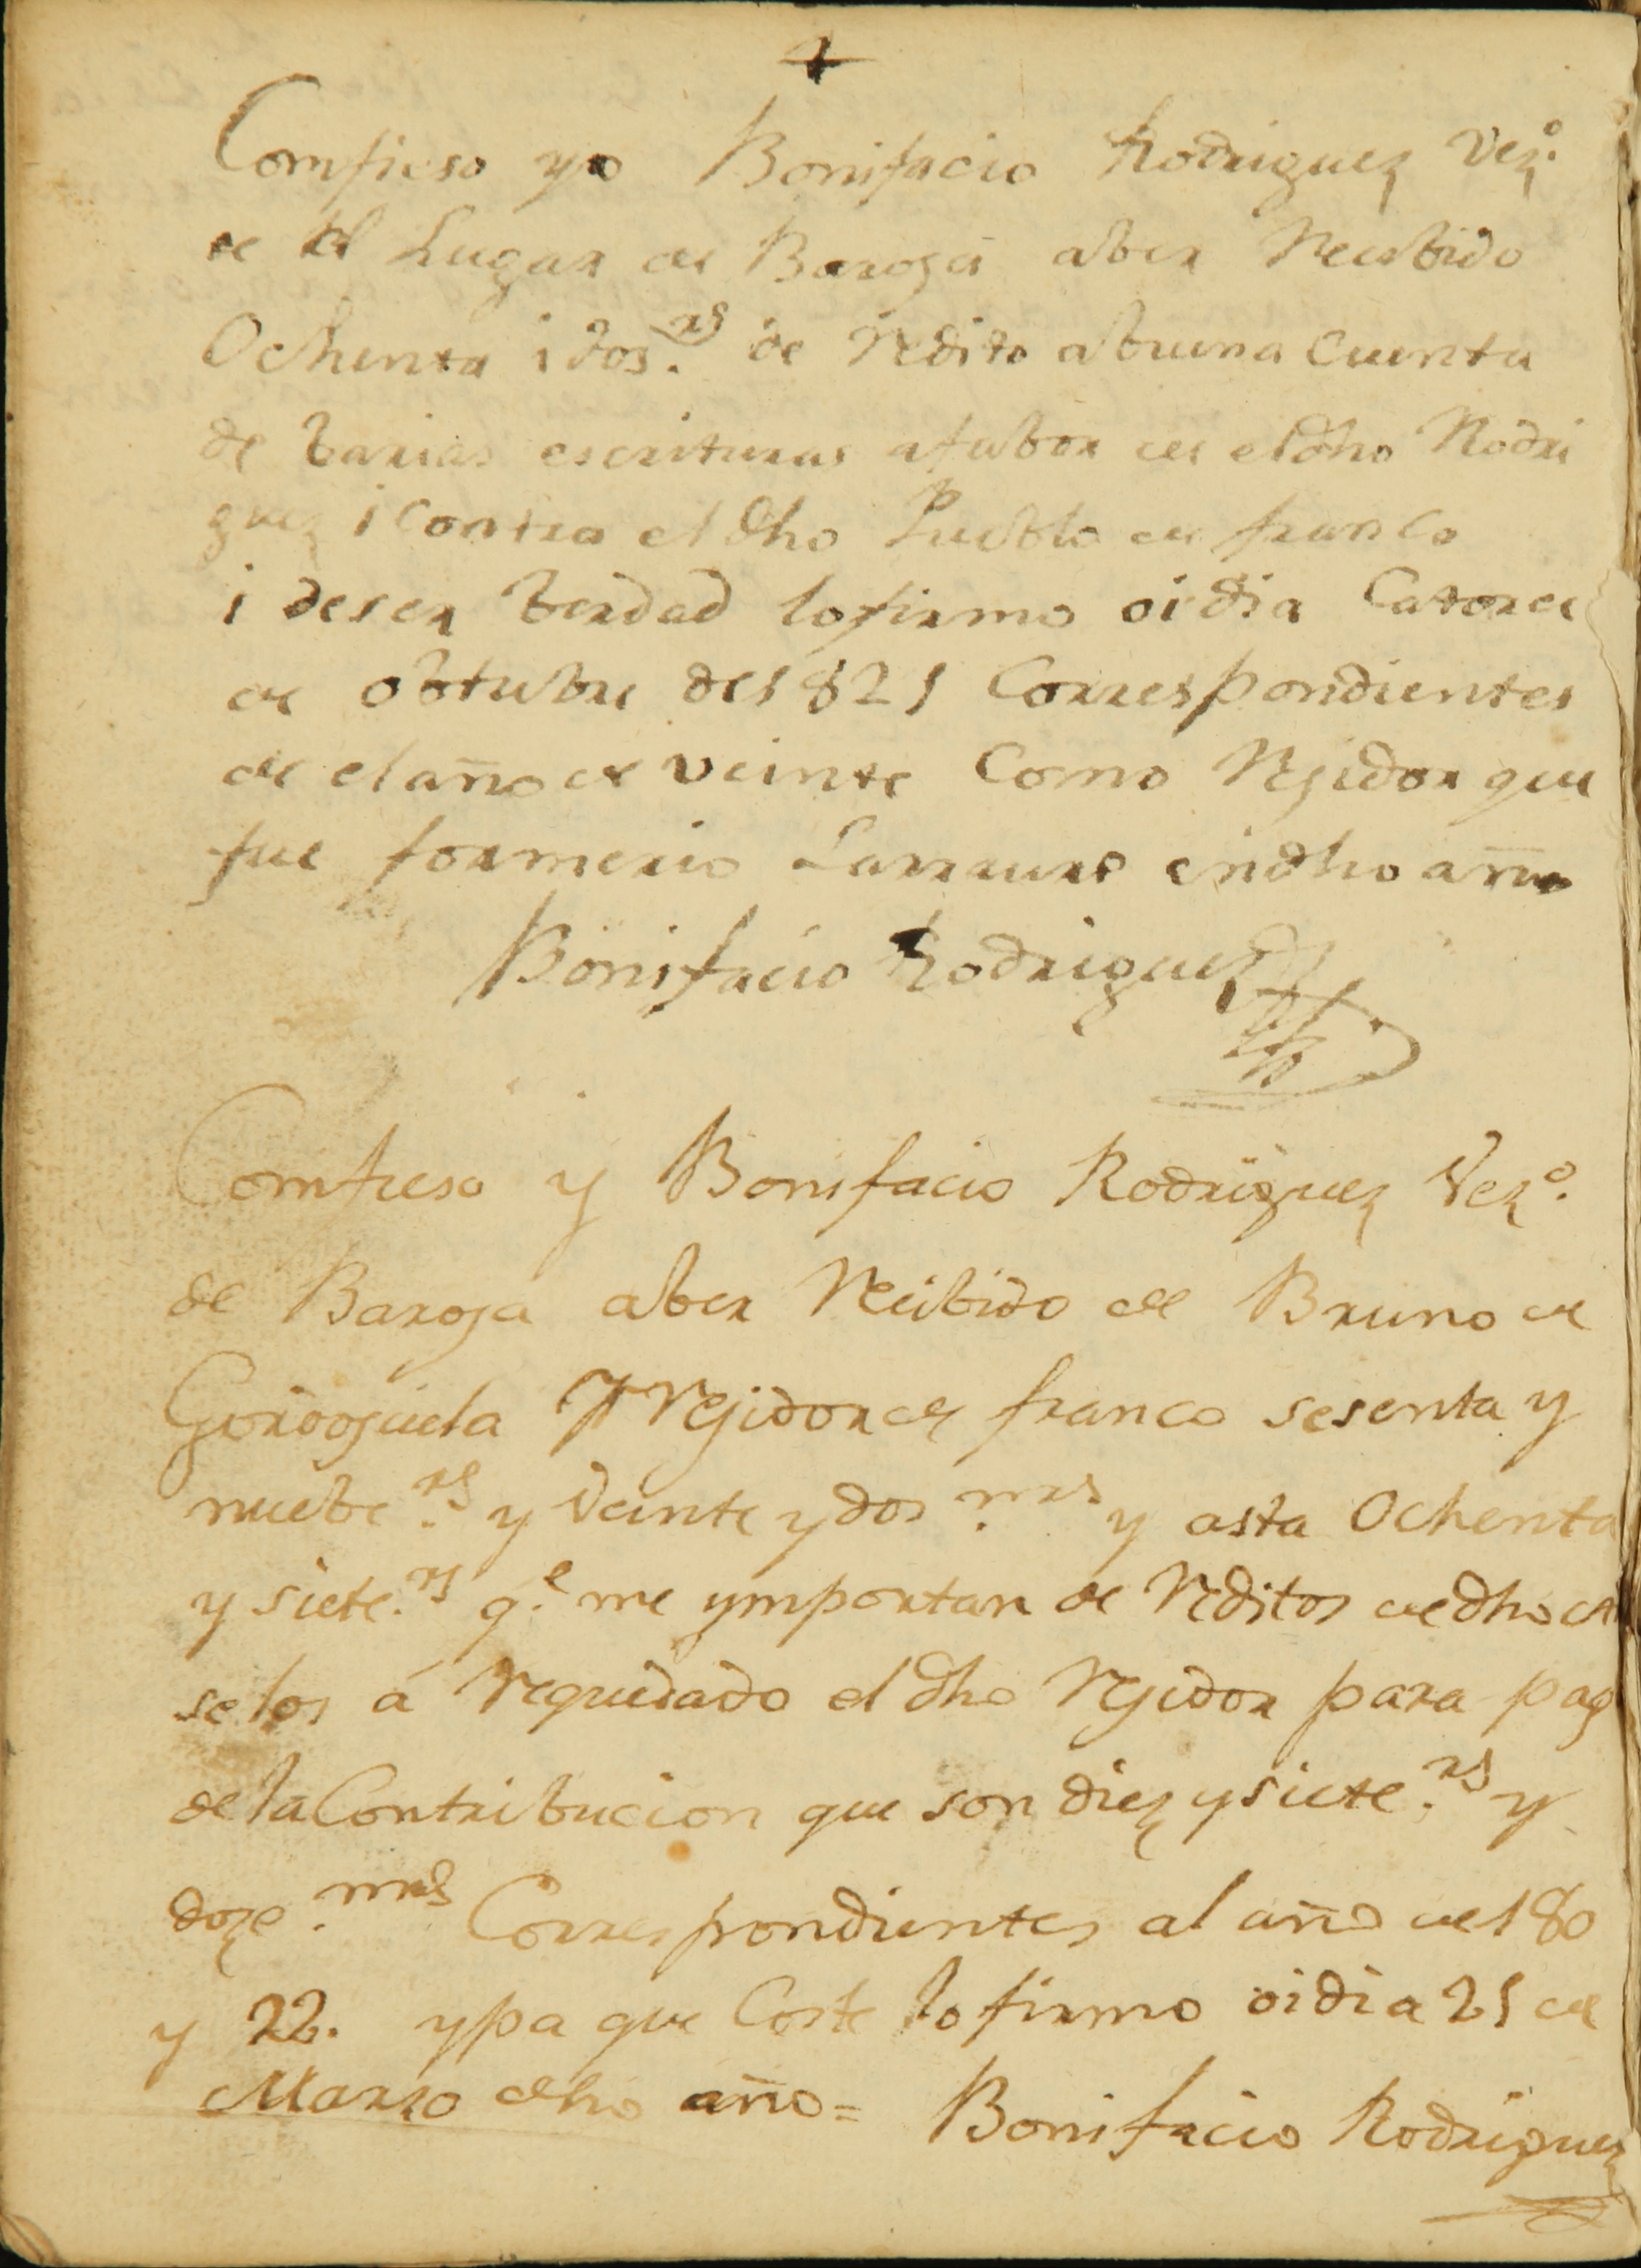 Comfieso yo Bonifacio Rodriguez Vez.º
de el Lugar de Baroja aber Recibido
Ochenta i dos.rs de Redito abuena Cuenta
de barias escrituras afabor de el dho Rodri
guez i Contra el dho Pueblo de franco
i deser berdad lo firmo oi dia Catorce
de obtubre de 1821 Correspondientes
de el año de veinte Como Rejidor que
fue formerio Larrauri en dho año
Bonifacio Rodriguez
Comfieso y Bonifacio Rodriguez Vez.º
de Baroja aber Recibido de Bruno de
Gordojuela Rejidor de franco sesenta y
nuebe.rs y Veinte y dos.mrs y asta Ochenta
y siete.rs q.e me ymportan de Reditos de dho
se los á requedado el dho Rejidor para pag
de la Contribucion que son diez y siete.rs y
doze.mrs Correspondientes al año de 180
y 22. y pa que Coste lo firmo oi dia 21 de
Marzo dho año = Bonifacio Rodriguez